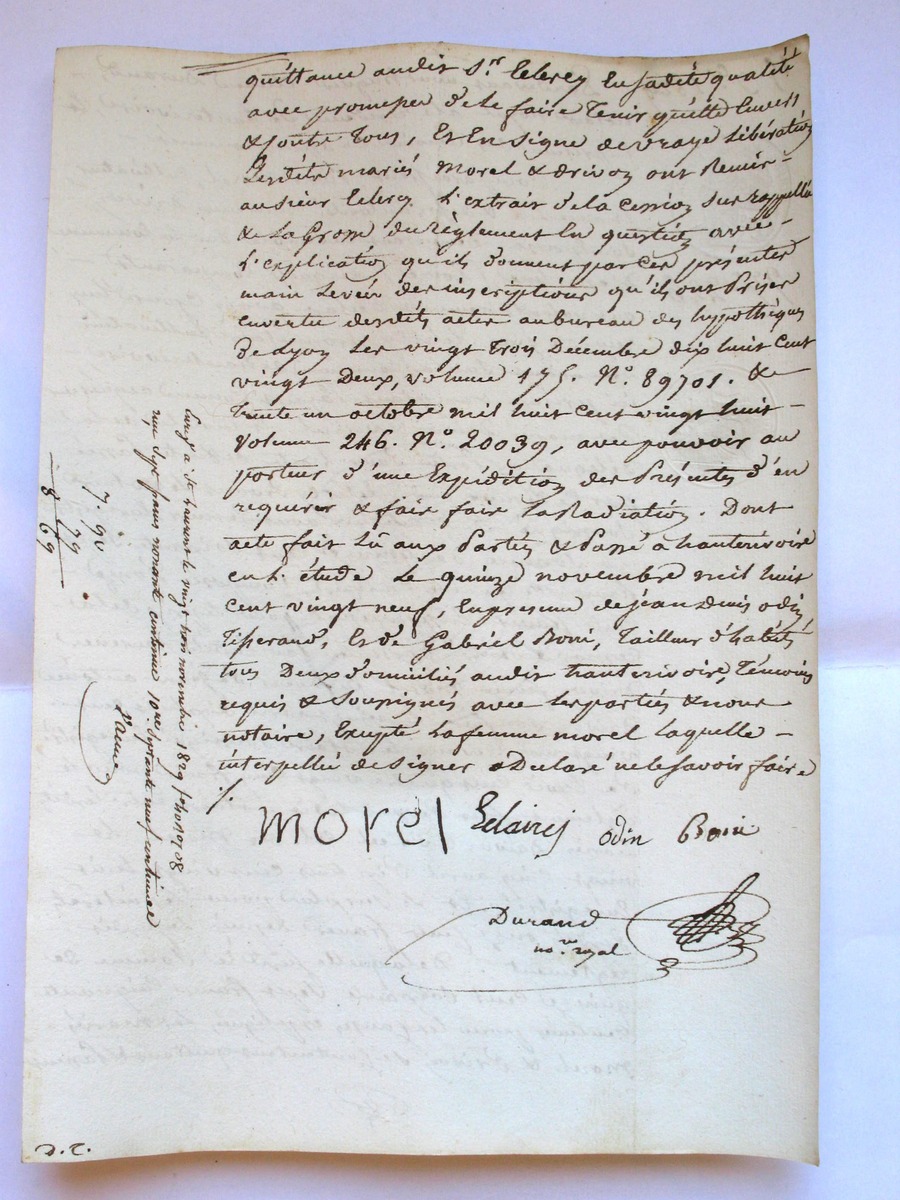 quittance audit S.r Leclerc En sadite qualité
avec promesse de le faire Tenir quitte Envers
& contre Tous, Et En Signe de vraye libération
Lesdits mariés Morel & drivon ont Remis
au sieur Leclerc L'extrait de la Cession sus rappellée
& La Grosse du Règlement En question avec
L'explication qu'ils donnent par ces présentes
main levée des inscriptions qu'ils ont Prises
en vertu desdits actes au bureau des hypothèques
de Lyon Les vingt Trois Décembre dix huit Cent
vingt Deux, volume 175. N.o 89701. &
Trente un octobre mil huit cent vingt huit
volume 246. N.o 20039, avec pouvoir au
porteur d'une Expédition des Présentes d'en
requérir & faire faire la Radiation. Dont
acte fait Lû aux Parties & Passé à hauterivoire
en L'étude Le quinze novembre mil huit
cent vingt neuf, En presence de jean denis odin
Tisserand, Et de Gabriel Boni, Tailleur d'habits
tous Deux domiciliés audit hauterivoire, Témoins
requis & Soussignés avec Les parties & nous
notaire, Excepté La femme morel laquelle
interpellée de Signer a Déclaré ne le Savoir faire
morel odin Boni
Durand
no.re royal
Enreg.é à St Laurent le vingt trois novembre 1829 f.o
reçu sept francs nonante centimes 10.me septante neuf centimes
7. 90
79
8 69
D. T.